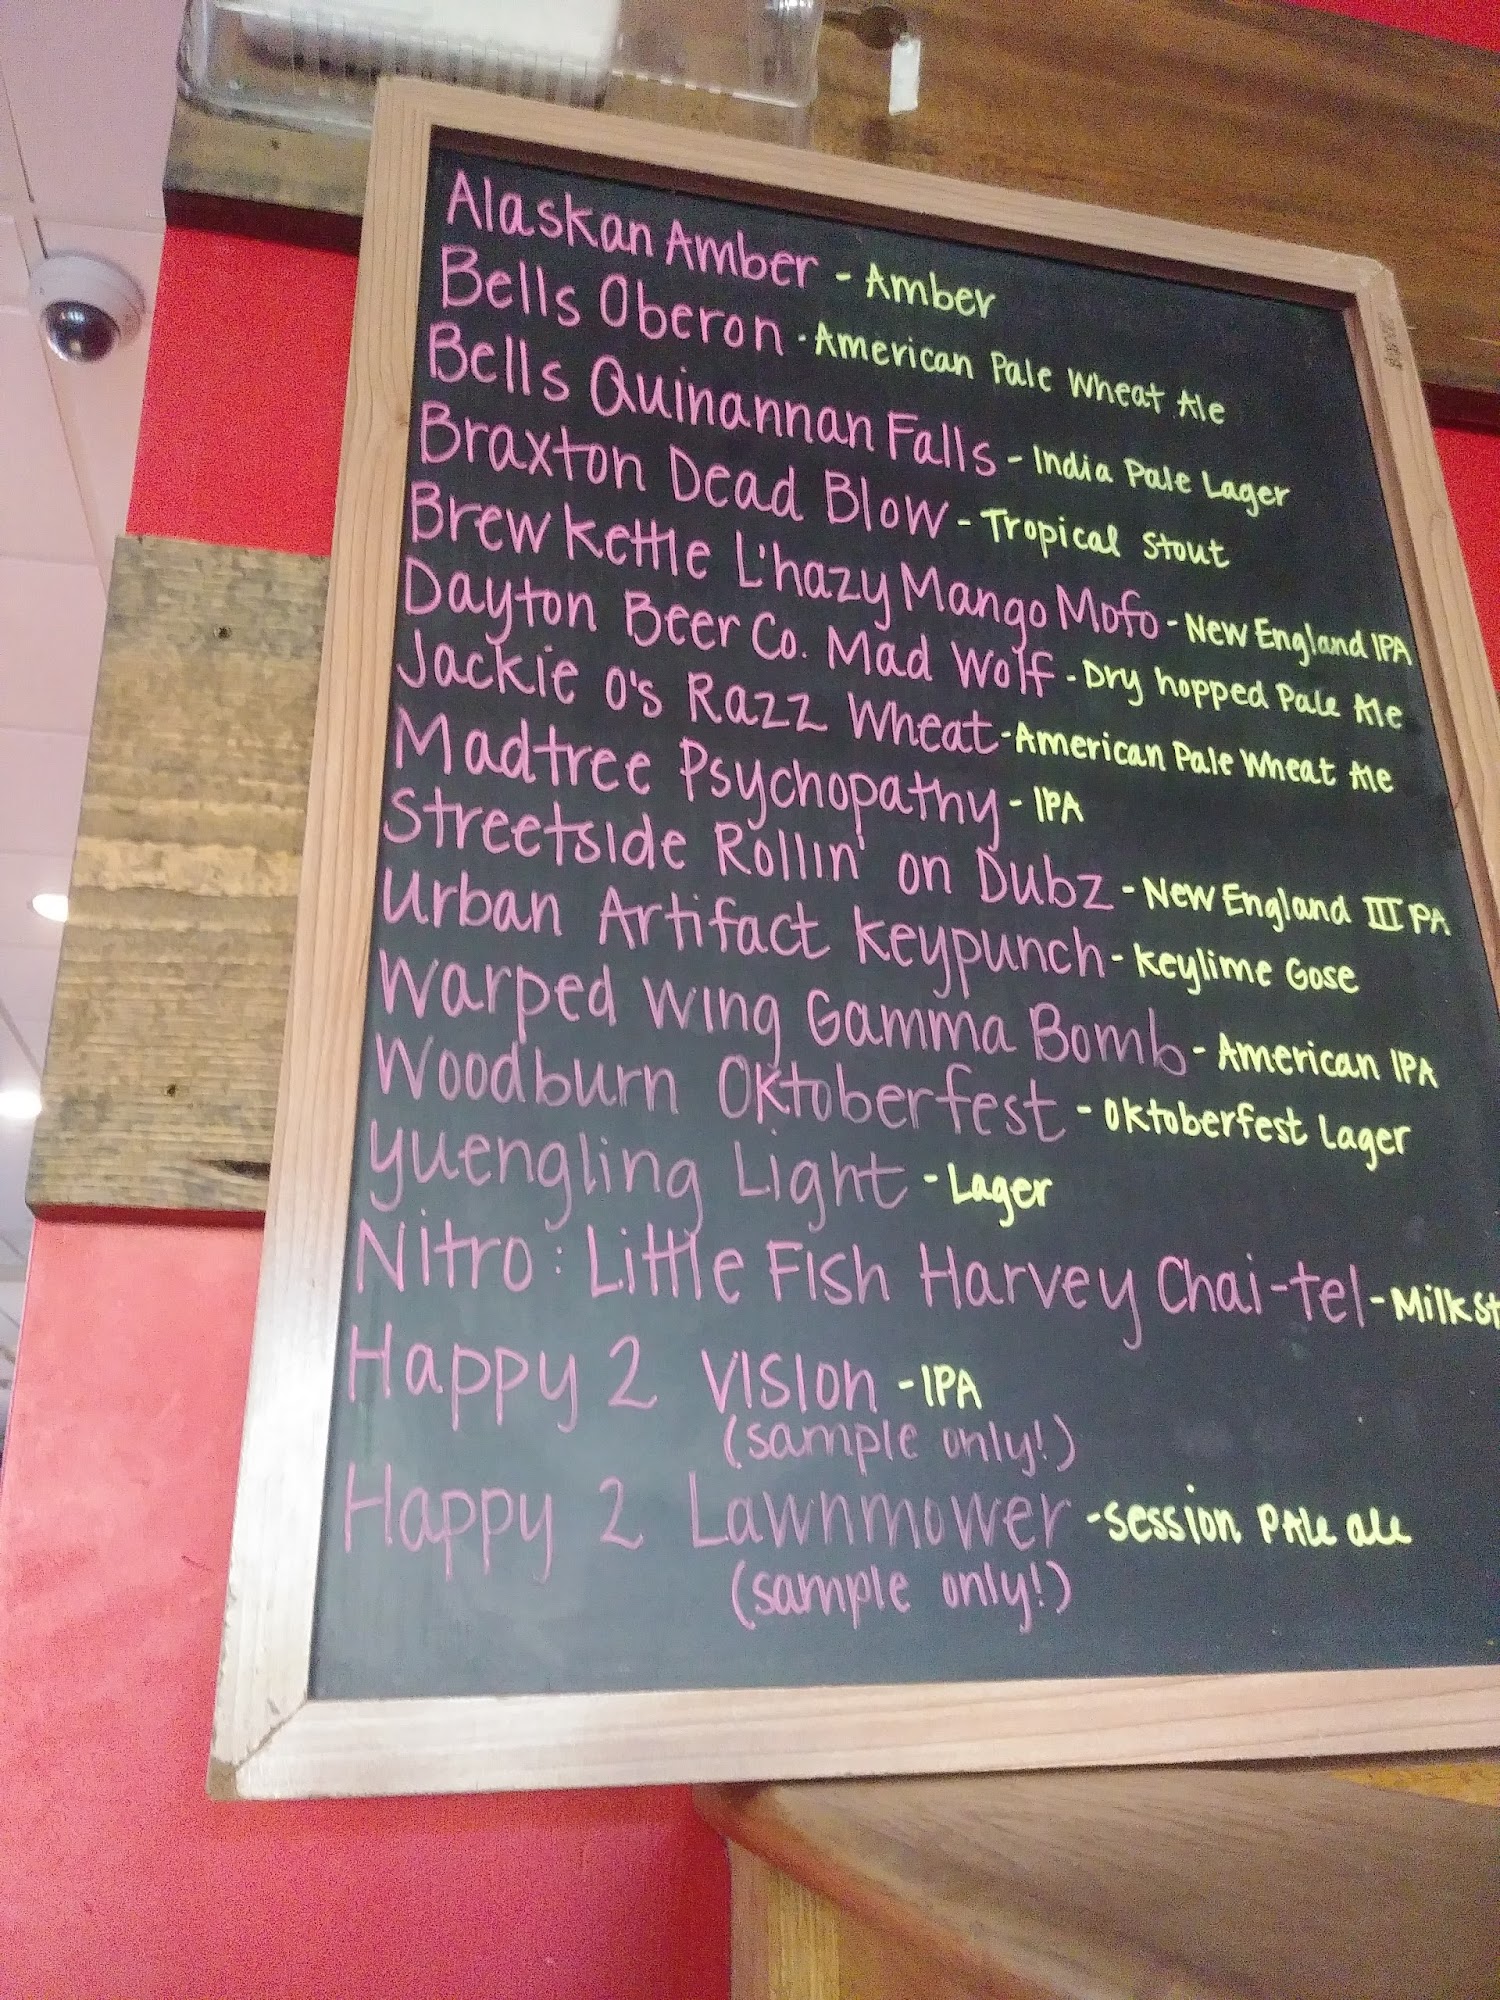 Alaskan Amber - Amber
Bells Oberon - American Pale Wheat Ale
Bells Quinannan Falls - India Pale Lager
Braxton Dead Blow - Tropical Stout
Brew Kettle L'hazy Mango Mofo - New England IPA
Dayton Beer Co. Mad Wolf - Dry hopped Pale Ale
Jackie O's Razz Wheat - American Pale Wheat Ale
Madtree Psychopathy - IPA
Streetside Rollin' on Dubz - New England III PA
Urban Artifact Keypunch - Keylime Gose
Warped Wing Gamma Bomb - American IPA
Woodburn Oktoberfest - Oktoberfest Lager
Yuengling Light - Lager
Nitro: Little Fish Harvey Chai-tel - Milk St
Happy 2 Vision - IPA
(sample only!)
Happy 2 Lawnmower - Session Pale ale
(sample only!)